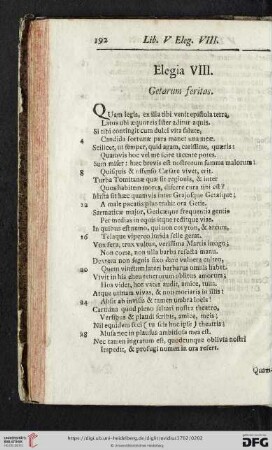 192 Lib. V Eleg. VIII.
Elegia VIII.
Getarum feritas.
QUam legis, ex illa tibi venit epistola terra,
Latus ubi æquoreis additur Ister aquis.
Si tibi contingit cum dulci vita salute,
4 Candida fortunæ pars manet una meæ.
Scilicet, ut semper, quid agam, carissime, quæris:
Quamvis hoc vel me scire tacente potes.
Sum miser: hæc brevis est nostrorum summa malorum:
8 Quisquis & offenso Cæsare vivet, erit.
Turba Tomitanæ quæ sit regionis, & inter
Quos habitem mores, discere cura tibi est?
Mista sit hæc quamvis inter Grajosque Getasque;
12 A male pacatis plus trahit ora Getis.
Sarmaticæ major, Geticæque frequentia gentis
Per medias in equis itque reditque vias.
In quibus est nemo, qui non coryton, & arcum,
16 Telaque vipereo lurida felle gerat.
Vox fera, trux vultus, verissima Martis imago;
Non coma, non ulla barba resecta manu.
Dextera non segnis fixo dare vulnera cultro;
20 Quem vinctum lateri barbarus omnis habet.
Vivit in his
Hos videt, hos vates audit, amice, tuus.
Atque utinam vivat, & non moriatur in illis:
24 Absit ab invisis & tamen umbra locis!
Carmina quod pleno saltari nostra theatro,
Versibus & plaudi scribis, amice, meis;
Nil equidem feci (tu scis hoc ipse) theatris;
28 Musa nec in plausus ambitiosa mea est.
Nec tamen ingratum est, quodcunque oblivia nostri
Impedit, & profugi nomen in ora refert.
https://digi.ub.uni-heidelberg.de/diglit/ovidius1702/0202
© Universitätsbibliothek Heidelberg
gefördert durch
DFG